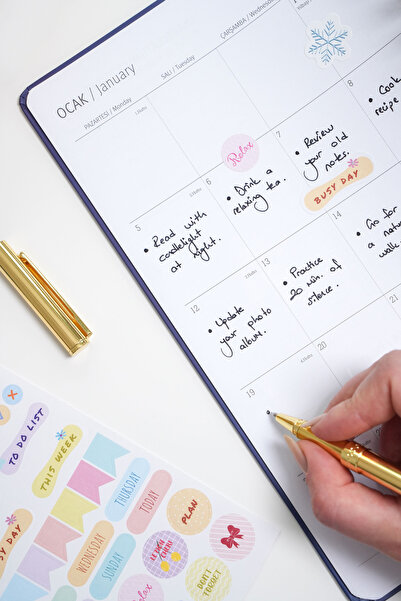 OCAK / January
PAZARTESİ / Monday
SALI / Tuesday
ÇARŞAMBA / Wednesday
1
5
• Read with
candlelight
at night.
6
Relax
• Drink a
relaxing tea.
7
• Review
your old
notes.
BUSY DAY
8
• Cook
recipe
12
• Update
your photo
album.
13
• Practice
20 min. of
silence.
14
• Go for
a natu
walk.
19
20
21
TO DO LIST
THIS WEEK
THURSDAY
TODAY
PLAN
WEDNESDAY
SUNDAY
DON'T
FORGET
SY DAY